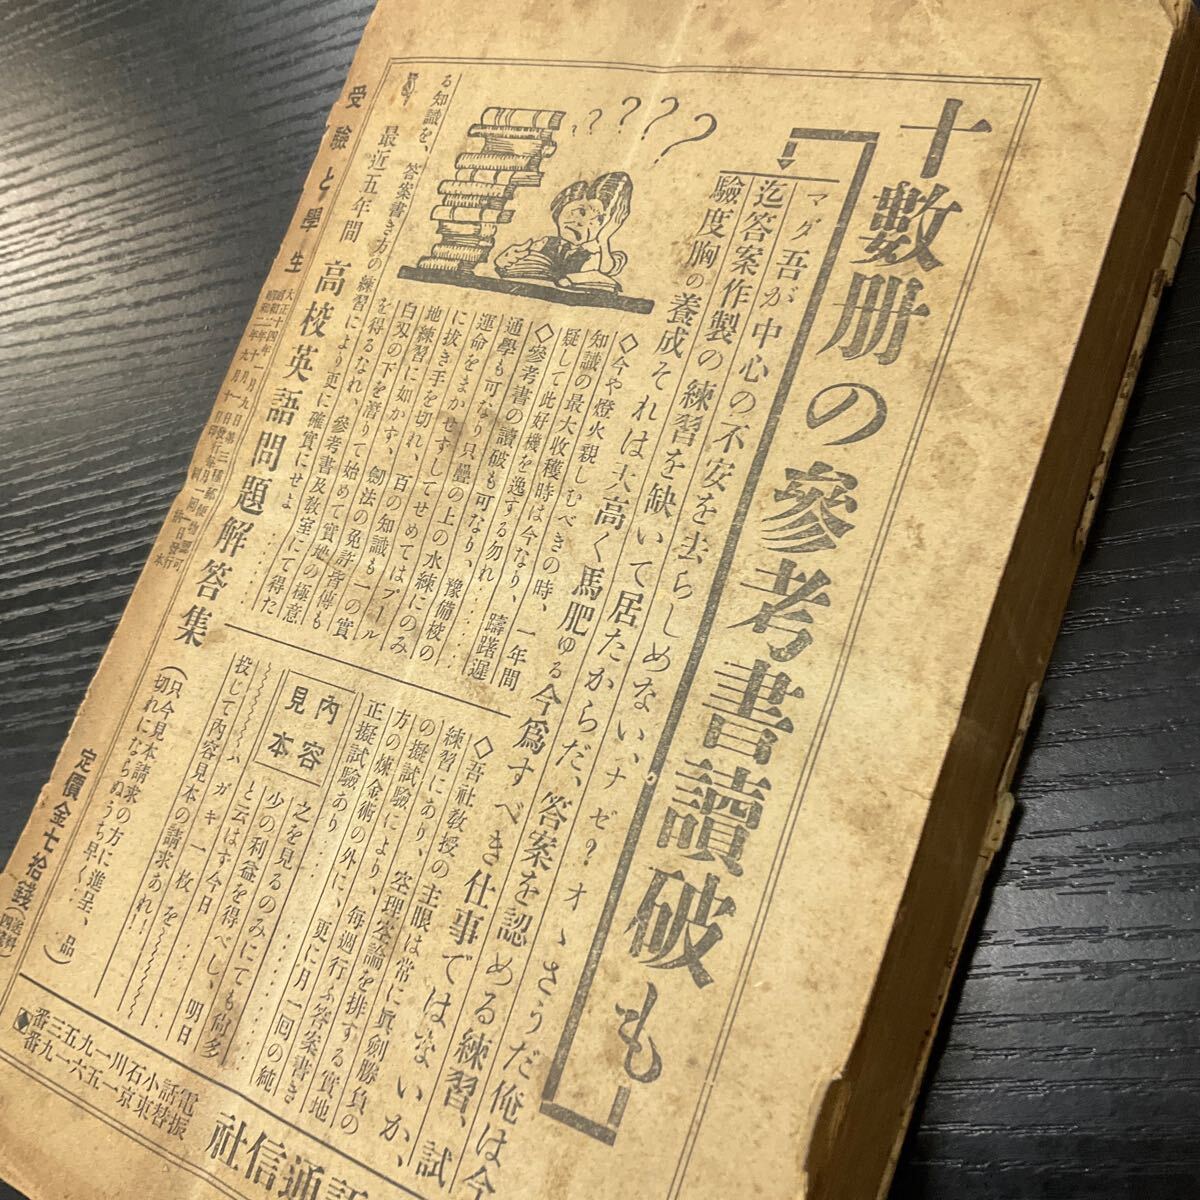 十數册の參考書讀破も
マダ吾が中心の不安を去らしめない、ナゼ?オヽさうだ俺は今
迄答案作製の練習を缺いて居たからだ、答案を認める練習、試
驗度胸の養成それは天高く馬肥ゆる今爲すべき仕事ではないか、
◇今や燈火親しむべきの時、一年間
知識の最大收穫時は今なり、
疑して此好機を逸する勿れ 躊躇遲
◇參考書の讀破も可なり、豫備校の
通學も可なり只疊の上の水練にのみ
運命をまかせずしてせめてはプール
に拔き手を切れ、百の知識も一の實
地練習に如かず、劍法の免許皆傳も
白刄の下を潜りて始めて實地の極意
を得るなれ、參考書及敎室にて得た
る知識を、答案書き方の練習により更に確實にせよ
◇吾社敎授の主眼は常に眞劍勝負の
練習にあり、空理空論を排する實地
の擬試驗により、每週行ふ答案書き
方の煉金術の外に、更に月一回の純
正擬試驗あり
內容見本
之を見るのみにても尙多
少の利益を得べし、明日
と云はず今日
ハガキ一枚を
投じて內容見本の請求あれ!
最近五年間 高校英語問題解答集
(只今見本請求の方に進呈、品
切れにならぬうち早く…)
受驗と學生
定價金七拾錢
電話小石川一九五三番
振替東京一五六一九番
通信社